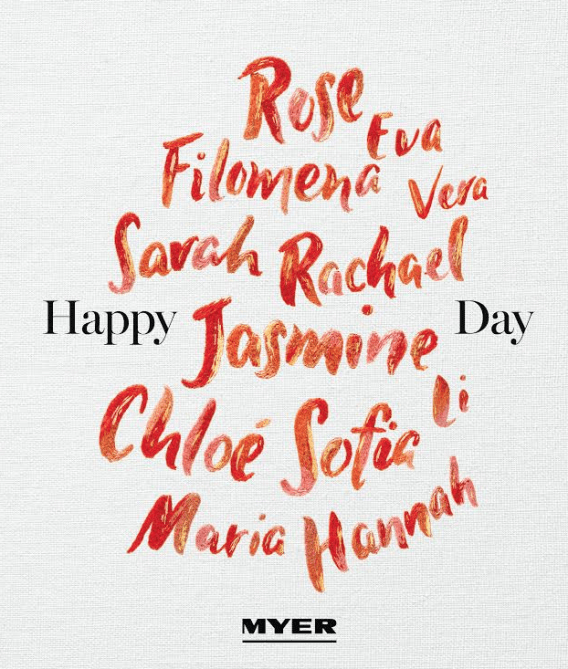 Rose
Eva
Filomena
Vera
Sarah Rachael
Happy Jasmine Day
Li
Chloé Sofia
Maria Hannah
MYER